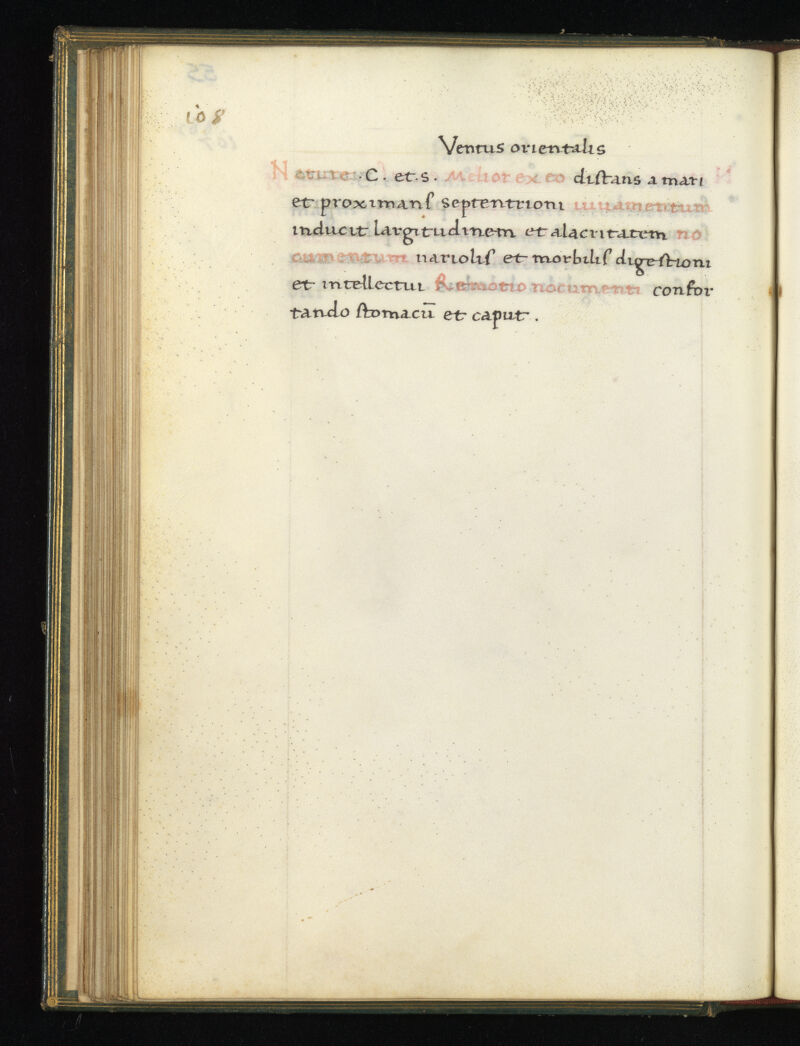 108
Ventus orientalis
Nature . C . et . s . Melior ex eo distans a mari
et proximans septentrioni iuuamentum
inducit largitudinem et alacritatem no
cumentum uariolis et morbilis digestioni
et intellectui Remotio nocumenti confor
tando stomacū et caput .